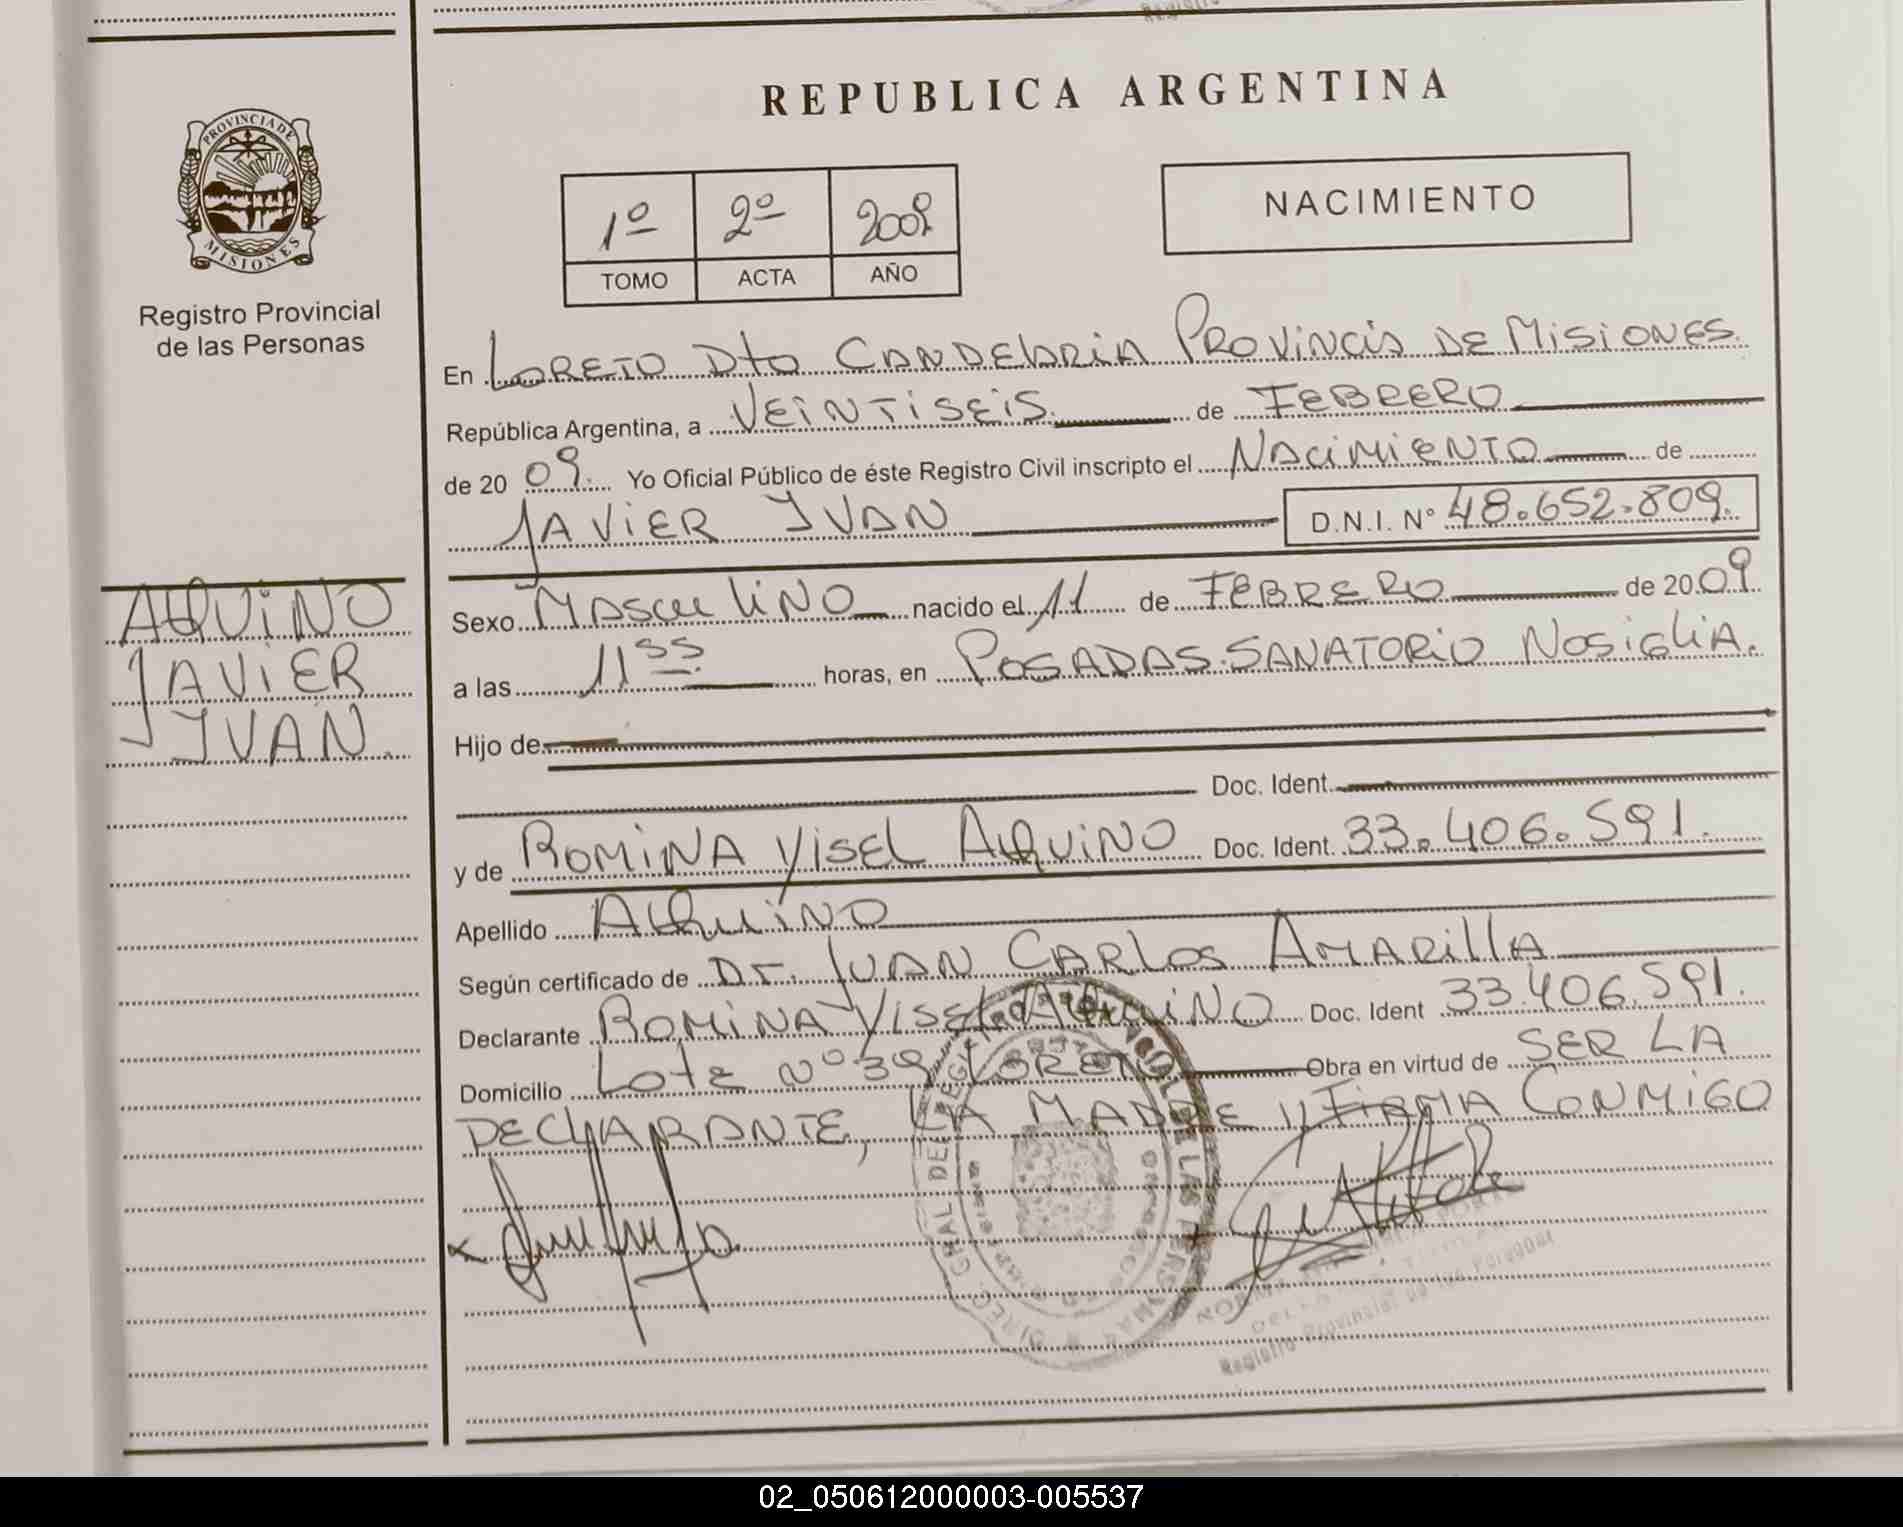 REPUBLICA ARGENTINA
PROVINCIA DE
MISIONES
Registro Provincial
de las Personas
1º 2º 2009
TOMO ACTA AÑO
NACIMIENTO
En LORETO Dto CANDELARIA PROVINCIA DE MISIONES.
República Argentina, a VEINTISEIS de FEBRERO
de 20 09. Yo Oficial Público de éste Registro Civil inscripto el NACIMIENTO de
JAVIER IVAN D.N.I. Nº 48.652.809.
AQUINO
JAVIER
IVAN.
Sexo MASCULINO nacido el 11 de FEBRERO de 20 09.
a las 11 55 horas, en POSADAS. SANATORIO NOSIGLIA.
Hijo de
Doc. Ident.
y de ROMINA YISEL AQUINO Doc. Ident. 33.406.591.
Apellido AQUINO
Según certificado de Dr. JUAN CARLOS AMARILLA
Declarante ROMINA YISEL AQUINO Doc. Ident 33.406.591.
Domicilio Lote Nº 39 LORETO Obra en virtud de SER LA
DECLARANTE, LA MADRE y FIRMA CONMIGO
Registro Provincial de las Personas
02_050612000003-005537